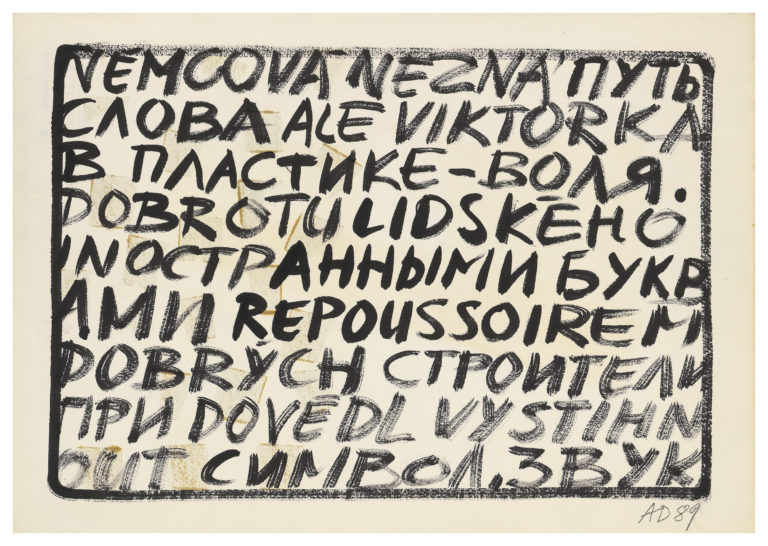 NĚMCOVÁ NEZNÁ ПУТЬ
СЛОВА ALE VIKTORKA
В ПЛАСТИКЕ-ВОЛЯ.
DOBROTU LIDSKÉHO
INОСТРАННЫМИ БУКВ
АМИ REPOUSSOIREM
DOBRÝCH СТРОИТЕЛИ
ПРИ DOVEDL VYSTIHN
OUT СИМВОЛ, ЗВУК
AD 89